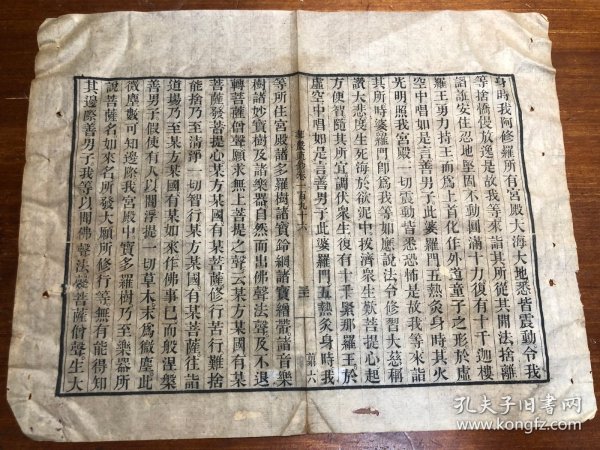 身時我阿修羅所有宮殿大海大地悉皆震動令我
等捨憍慢放逸是故我等來詣其所從其聞法捨離
諂誑安住忍地堅固不動圓滿十力復有十千迦樓
羅王勇力持王而為上首化作外道童子之形於虛
空中唱如是言善男子此婆羅門五熱炙身時其火
光明照我宮殿一切震動皆悉恐怖是故我等來詣
其所時婆羅門即為我等如應說法令修習大慈稱
讚大悲度生死海於欲泥中拔濟衆生歎菩提心起
方便智隨其所宜調伏衆生復有十千緊那羅王於
虛空中唱如是言善男子此婆羅門五熱炙身時我
華嚴疏鈔卷一百九十六
三
第六
等所住宮殿諸多羅樹諸寶鈴網諸寶繒帶諸音樂
樹諸妙寶樹及諸樂器自然而出佛聲法聲及不退
轉菩薩僧聲願求無上菩提之聲云某方某國有某
菩薩發菩提心某方某國有某菩薩修行苦行難捨
能捨乃至清淨一切智行某方某國有某菩薩往詣
道場乃至某方某國有某如來作佛事已而般涅槃
善男子假使有人以閻浮提一切草木末為微塵此
微塵數可知邊際我宮殿中寶多羅樹乃至樂器所
說菩薩名如來名所發大願所修行等無有能得知
其邊際善男子我等以聞佛聲法聲菩薩僧聲生大
孔夫子旧书网
www.kongfz.com